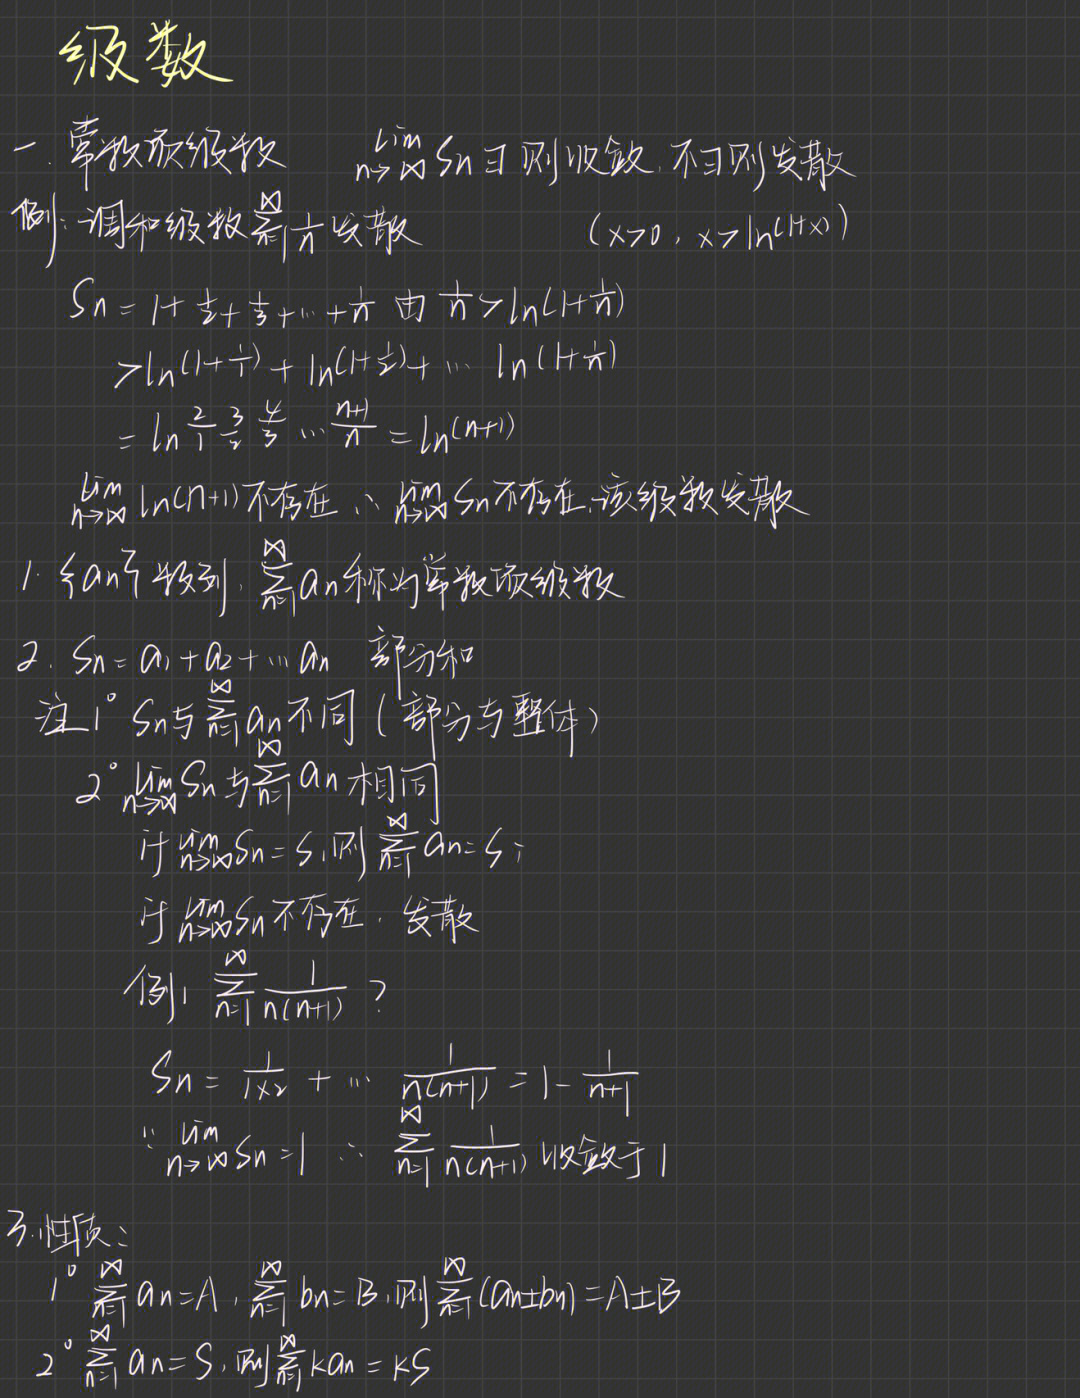 级数
一. 常数项级数 lim n→∞ Sn ∃ 则收敛, 不∃则发散
例: 调和级数 ∑ n=1 ∞ 1/n 发散 (x>0, x>ln(1+x))
Sn = 1+ 1/2 + 1/3 + ⋯ + 1/n 由 1/n > ln(1+1/n)
> ln(1+1/1) + ln(1+1/2) + ⋯ ln(1+1/n)
= ln 2/1 3/2 4/3 ⋯ (n+1)/n = ln(n+1)
lim n→∞ ln(n+1) 不存在, ∴ lim n→∞ Sn 不存在, 该级数发散
1. {an} 数列, ∑ n=1 ∞ an 称为常数项级数
2. Sn = a1+a2+⋯an 部分和
注 1° Sn与 ∑ n=1 ∞ an 不同 (部分与整体)
2° lim n→∞ Sn 与 ∑ n=1 ∞ an 相同
if lim n→∞ Sn = S, 则 ∑ n=1 ∞ an = S;
if lim n→∞ Sn 不存在, 发散
例1 ∑ n=1 ∞ 1/(n(n+1)) ?
Sn = 1/(1×2) + ⋯ 1/(n(n+1)) = 1 - 1/(n+1)
∵ lim n→∞ Sn = 1 ∴ ∑ n=1 ∞ 1/(n(n+1)) 收敛于1
3. 性质:
1° ∑ n=1 ∞ an = A, ∑ n=1 ∞ bn = B, 则 ∑ n=1 ∞ (an±bn) = A±B
2° ∑ n=1 ∞ an = S, 则 ∑ n=1 ∞ kan = kS